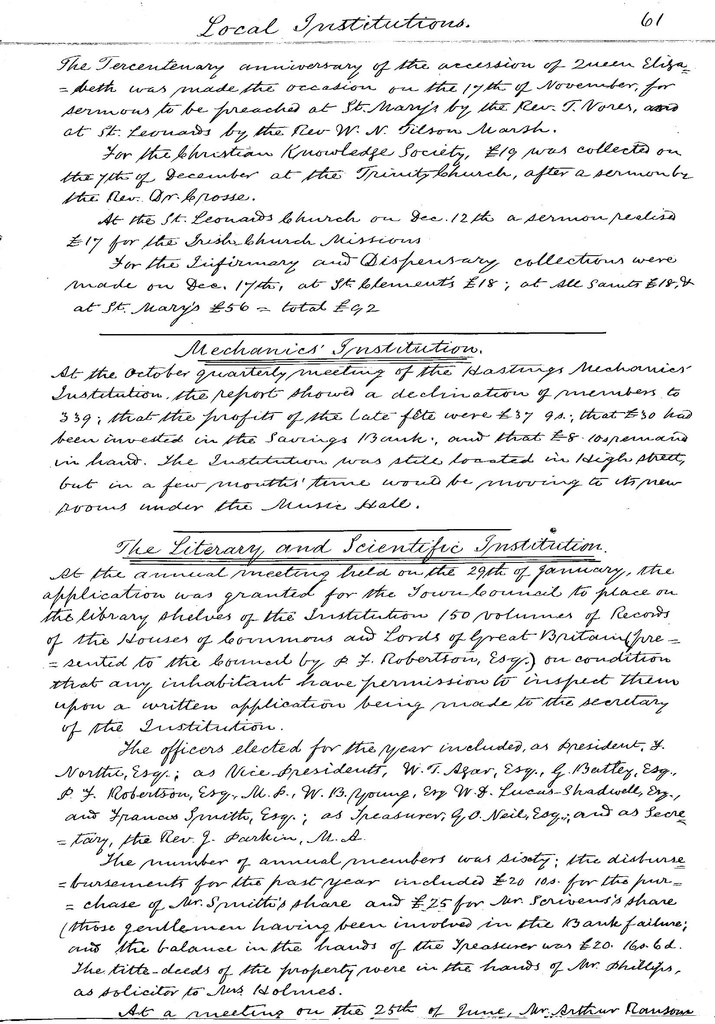 Local Institutions. 61
The Tercentenary anniversary of the accession of Queen Eliza=
=beth was made the occasion on the 17th of November, for
sermons to be preached at St. Mary's by the Rev. T. Vores, and
at St. Leonards by the Rev W. N. Tilson Marsh.
For the Christian Knowledge Society, £19 was collected on
the 7th of December at the Trinity Church, after a sermon by
the Rev. Dr. Crosse.
At the St. Leonards Church on Dec. 12th a sermon realised
£17 for the Irish Church Missions
For the Infirmary and Dispensary collections were
made on Dec. 17th, at St Clement's £18; at All Saints £18, &
at St. Mary's £56 = total £92
Mechanics' Institution.
At the October quarterly meeting of the Hastings Mechanics'
Institution the report showed a declination of members to
339; that the profits of the late fête were £37 9s.; that £30 had
been invested in the Savings Bank; and that £8. 10s remained
in hand. The Institution was still located in High street,
but in a few months' time would be moving to its new
rooms under the Music Hall.
The Literary and Scientific Institution.
At the annual meeting held on the 29th of January, the
application was granted for the Town Council to place on
the library shelves of the Institution 150 volumes of Records
of the Houses of Commons and Lords of Great Britain (pre=
=sented to the Council by P. F. Robertson, Esq.) on condition
that any inhabitant have permission to inspect them
upon a written application being made to the secretary
of the Institution.
The officers elected for the year included, as President, F.
North, Esq.; as Vice-Presidents, W. T. Agar, Esq., G. Batley, Esq.,
P. F. Robertson, Esq., M.P., W. B. Young, Esq W. D. Lucas-Shadwell, Esq.,
and Francis Smith, Esq.; as Treasurer, G. O. Neil, Esq.; and as Secre=
=tary, the Rev. J. Parkin, M.A.
The number of annual members was sixty; the disburse=
=bursements for the past year included £20 10s. for the pur=
=chase of Mr. Smith's share and £25 for Mr. Scrivens's share
(those gentlemen having been involved in the Bank failure;
and the balance in the hands of the Treasurer was £20. 16s. 6d.
The title-deeds of the property were in the hands of Mr. Phillips,
as solicitor to Mrs Holmes.
At a meeting on the 25th of June, Mr. Arthur Ransom